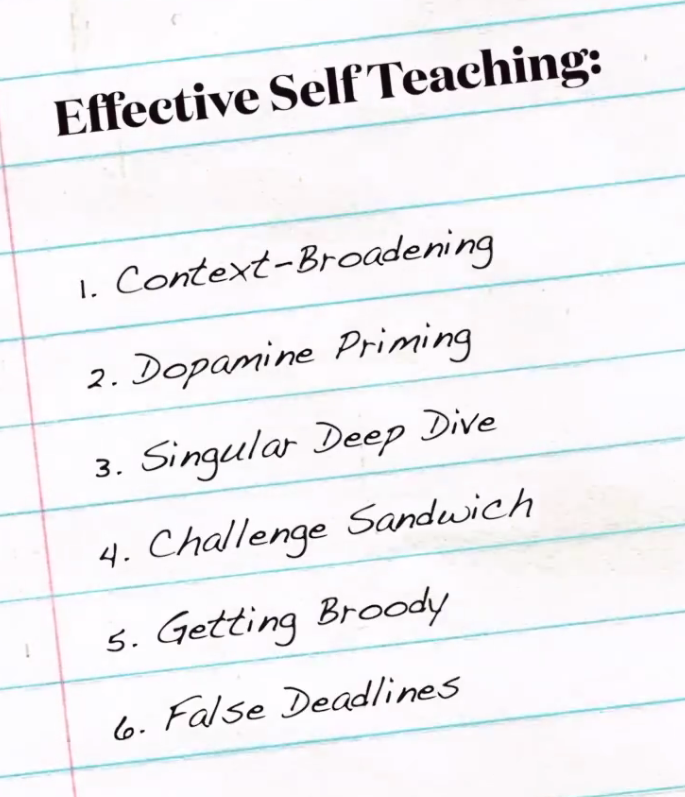 Effective Self Teaching:
1. Context-Broadening
2. Dopamine Priming
3. Singular Deep Dive
4. Challenge Sandwich
5. Getting Broody
6. False Deadlines